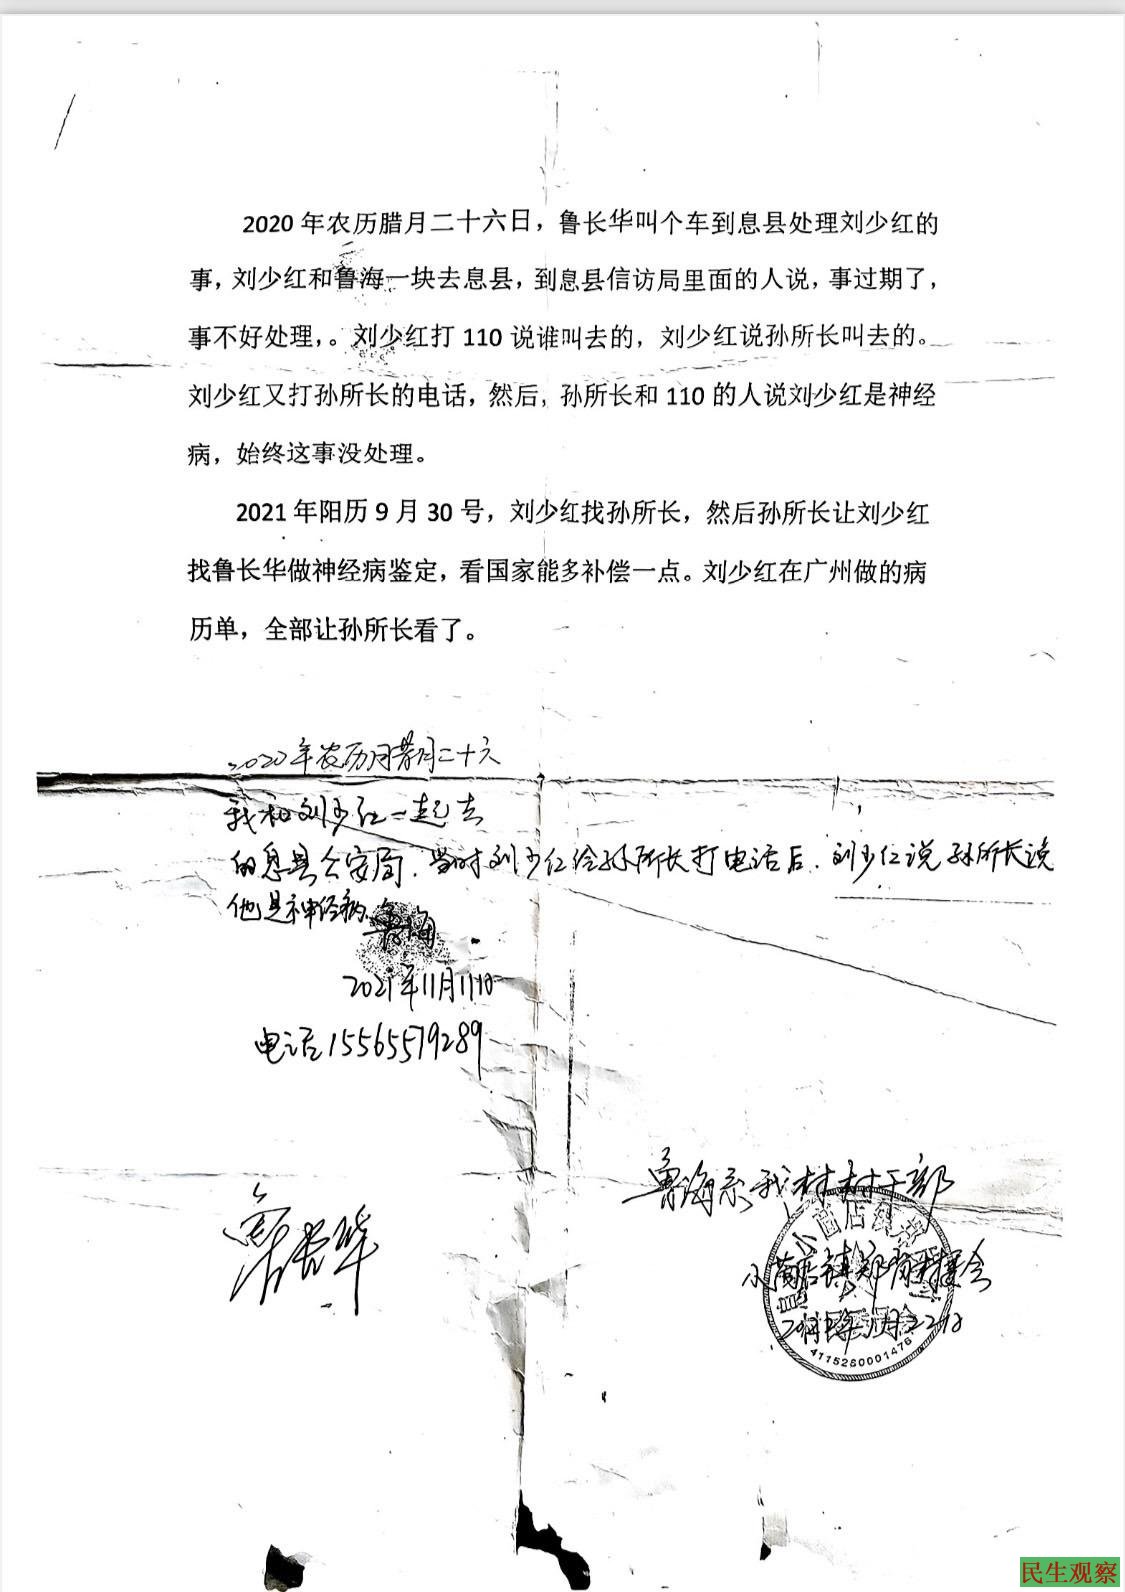 2020 年农历腊月二十六日，鲁长华叫个车到息县处理刘少红的
事，刘少红和鲁海一块去息县，到息县信访局里面的人说，事过期了，
事不好处理，。刘少红打 110 说谁叫去的，刘少红说孙所长叫去的。
刘少红又打孙所长的电话，然后，孙所长和 110 的人说刘少红是神经
病，始终这事没处理。
2021 年阳历 9 月 30 号，刘少红找孙所长，然后孙所长让刘少红
找鲁长华做神经病鉴定，看国家能多补偿一点。刘少红在广州做的病
历单，全部让孙所长看了。
2020年农历月腊月二十六
我和刘少红一起去
的息县公安局.当时刘少红给孙所长打电话后.刘少红说孙所长说
他是神经病
鲁海
2021年11月11日
电话15565579289
鲁海系我村村干部
鲁长华
小茴店镇
月22日
4115280001476
民生观察